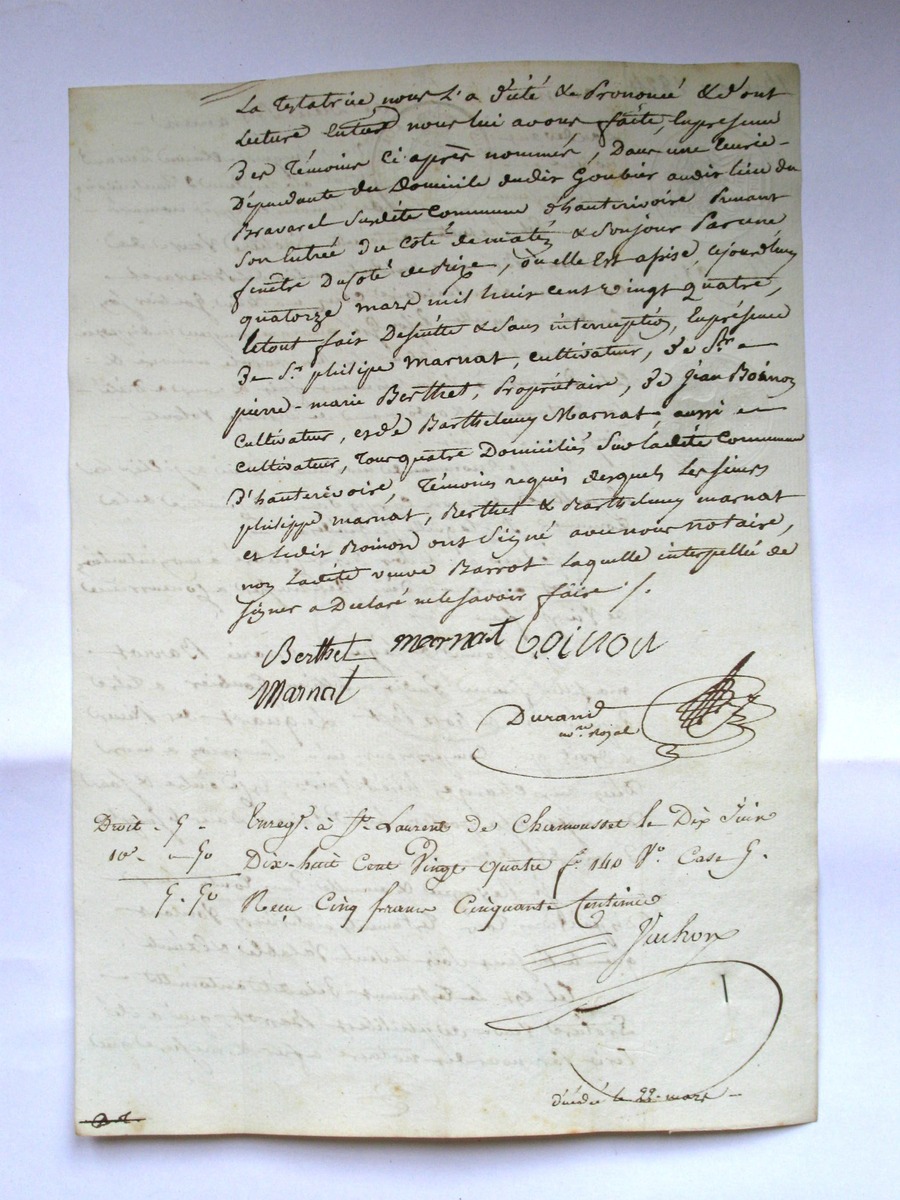 La Testatrice nous L'a dicté & Prononcé & dont
Lecture Entiere nous lui avons faite, En présence
Des Témoins Ci après nommés, Dans une
Dépendante du Domicile dudit Goubier audit lieu du
Bravarel Susdite Commune d'hauterivoire Prenant
Son Entrée du Coté de matin & Son jour Par une
fenêtre Du Coté de bize, où elle Est assise, aujourd'huy
quatorze mars mil huit cent vingt quatre,
Le tout fait De suitte & Sans interruption, En présence
De Sr. philipe Marnat, cultivateur, de Sr.
pierre-marie Berthet, Propriétaire, de Jean Boinon
Cultivateur, et de Barthelemy Marnat aussi
Cultivateur, Tous quatre Domiciliés Sur Ladite Commune
D'hauterivoire, Témoins requis desquels Les Sieurs
philippe marnat, Berthet & Barthelemy marnat
et Ledit Boinon ont Signé avec nous notaire,
non Ladite veuve Barrot Laquelle interpellée de
Signer a Déclaré ne le Savoir faire /.
Berthet marnat Boinon
Marnat
Durand
nre. Royal
Droit - 5 -
10e. - 50
5. 50
Enregé. à St. Laurent de Chamousset le Dix Juin
Dix-huit Cent Vingt quatre fo. 140 Vo. Case 5.
Reçu Cinq francs Cinquante Centimes
décédée le 22 mars